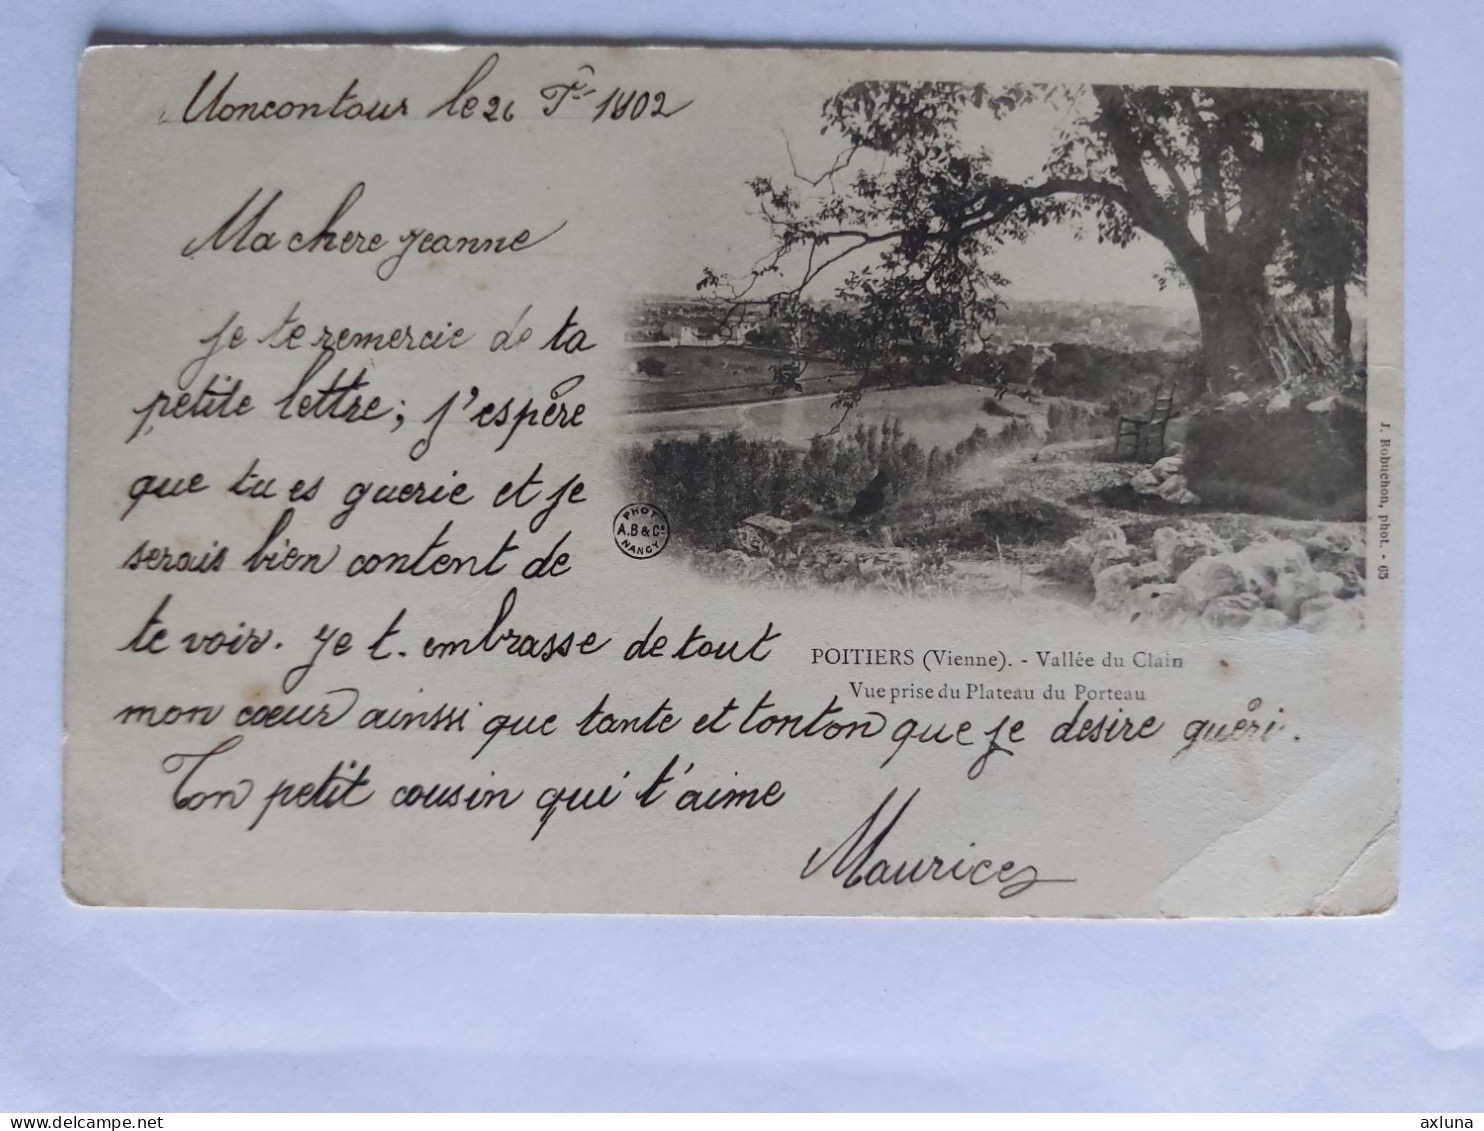 Moncontour le 26 Fr 1902
Ma chere Jeanne
Je te remercie de ta
petite lettre; j'espère
que tu es guerie et je
serais bien content de
te voir. Je t. embrasse de tout
mon cœur ainssi que tante et tonton que je desire guèri.
Ton petit cousin qui t'aime
Maurice
PHOT
A.B & Cie
NANCY
POITIERS (Vienne). - Vallée du Clain
Vue prise du Plateau du Porteau
J. Robuchon, phot. - 65
axluna